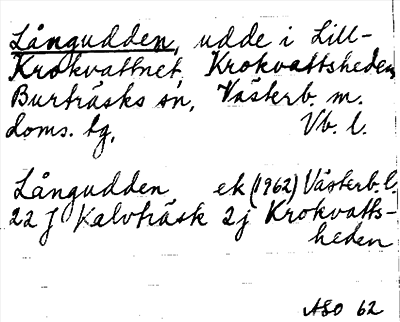 Långudden, udde i Lill-
Krokvattnet, Krokvattsheden,
Burträsks sn, Västerb. m.
doms. tg, Vb. l.
Långudden ek (1962) Västerb. l.
22 J Kalvträsk 2j Krokvatts-
heden
ASO 62